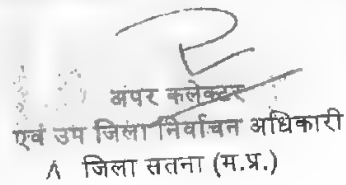 अपर कलेक्टर
एवं उप जिला निर्वाचन अधिकारी
जिला सतना (म.प्र.)